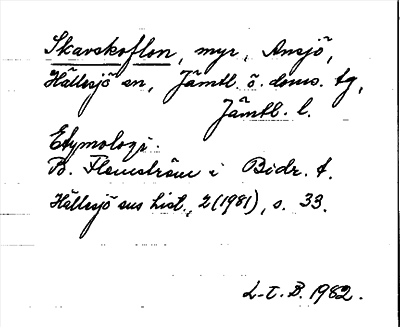 Skavskoflon, myr, Ansjö,
Hällesjö sn, Jämtl. ö. doms. tg,
Jämtl. l.
Etymologi.
B. Flemström i Bidr. t.
Hällesjö sns hist., 2 (1981), s. 33.
L-E. B. 1982.